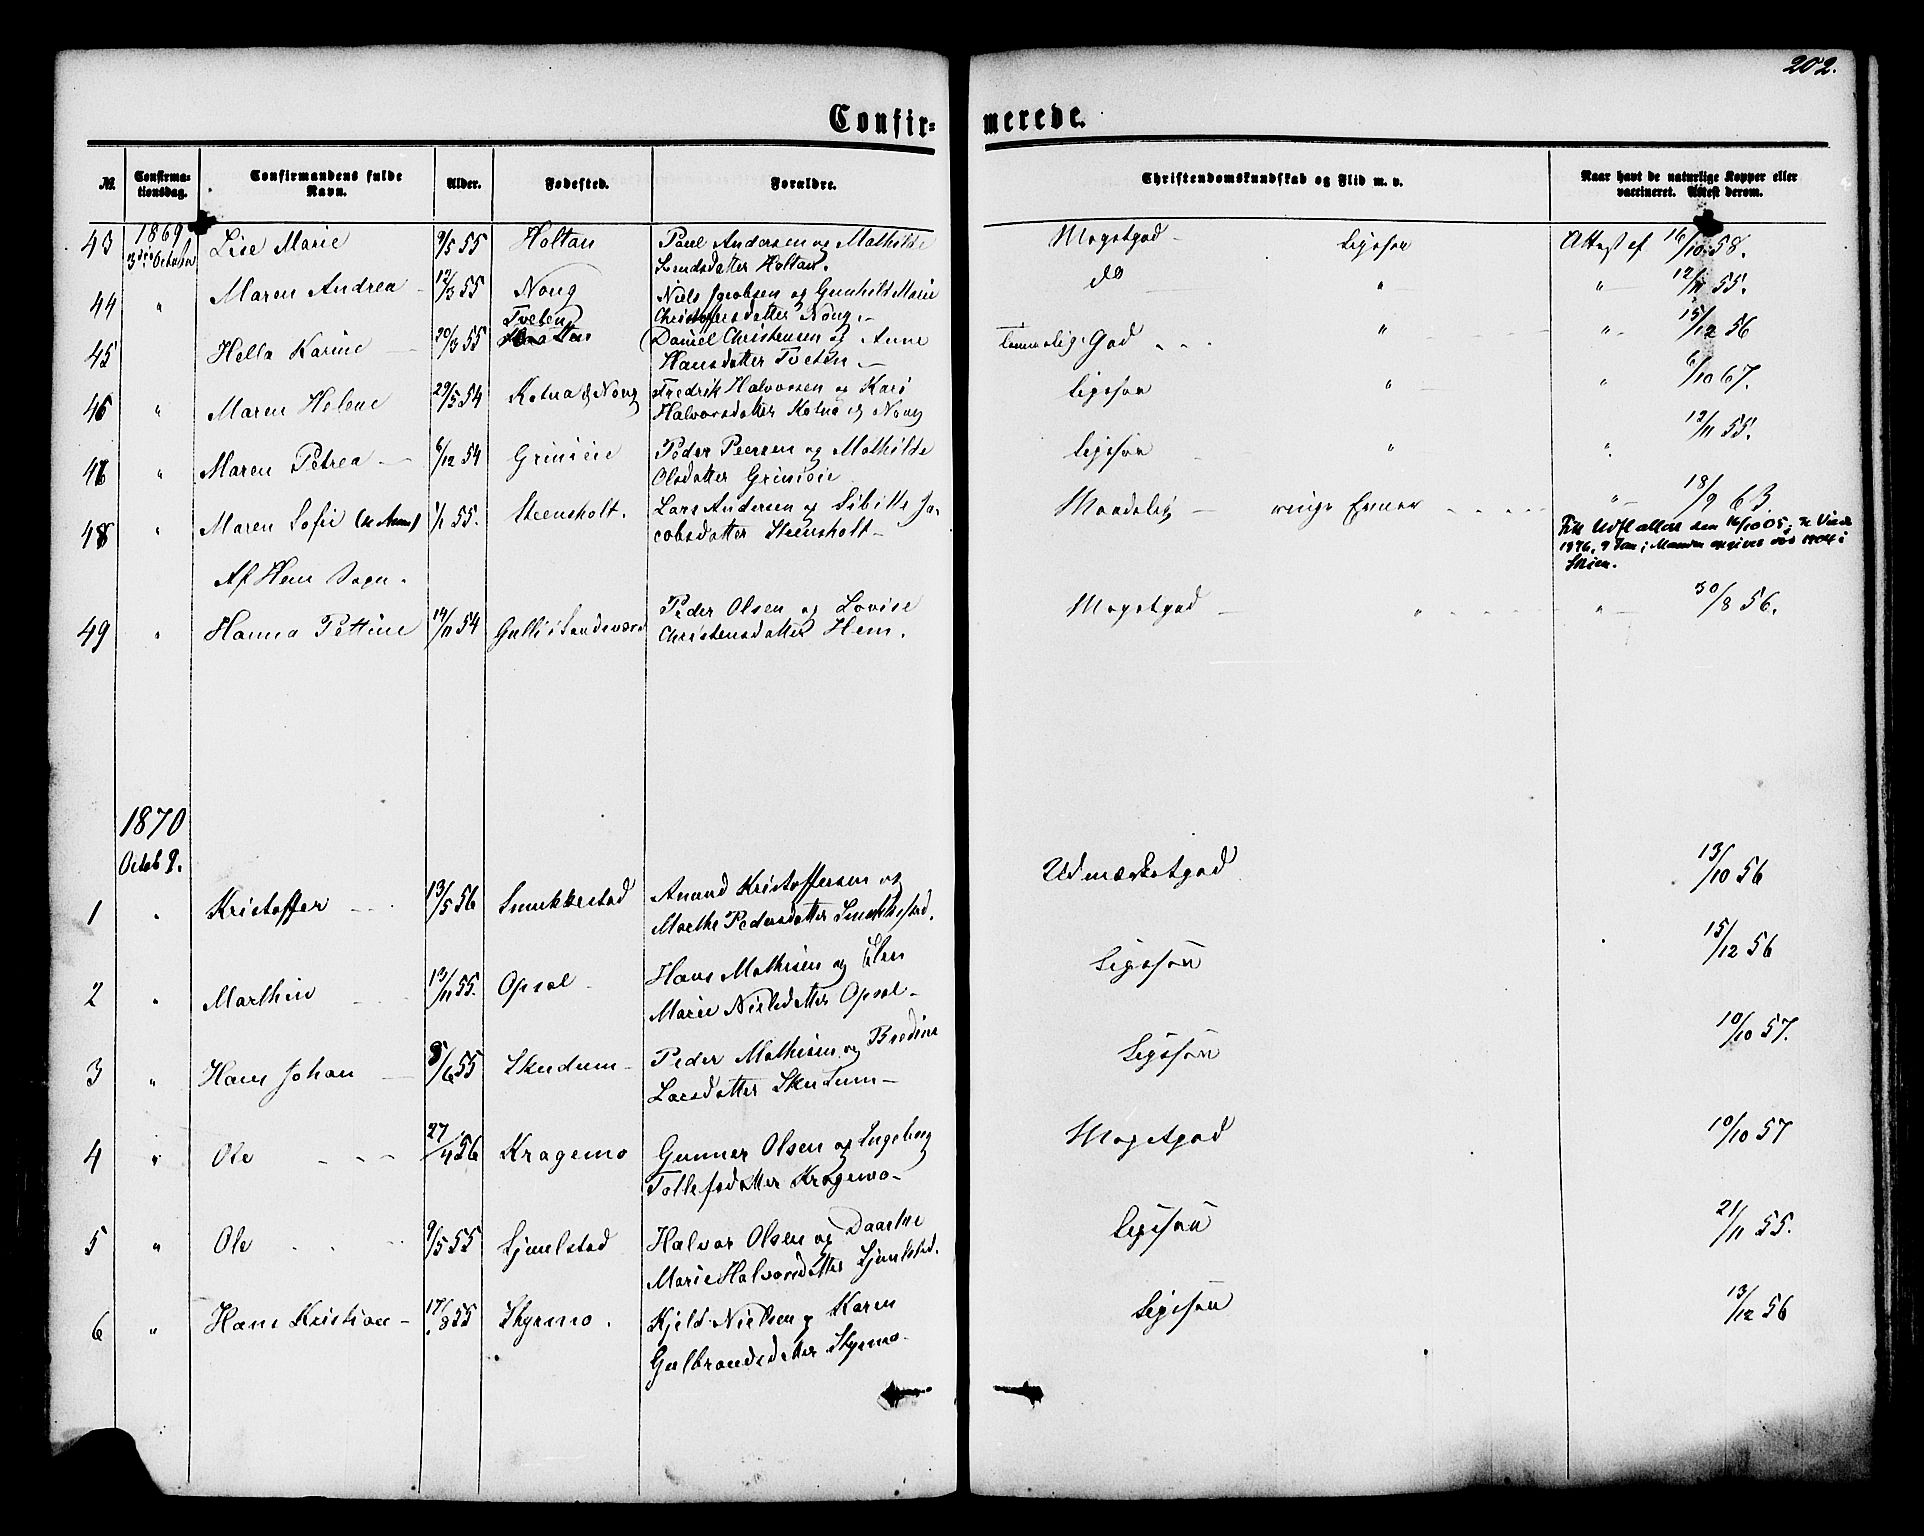 202.
Confir- merede.
№ Confirmationsdag. Confirmandens fulde Navn. Alder. Fødested. Forældre. Christendomskundskab og Flid m. v. Naar havt de naturlige Kopper eller vaccineret. Attest derom.
1869
43 3die October Lise Marie 9/5 55 Holtan Paul Andersen og Mathilde Meget god Ligesom Attest af 16/10 58.
Holtan.
44 " Maren Andrea 12/3 55 Nong Niels Jacobsen og Gunhild Marie do " " 12/11 55.
Christoffersdatter Nong.
Tveten
45 Hella Karine 20/3 55 Daniel Christensen og Anne Temmelig God " " 15/12 56
Hansdatter Tveten
46 " Maren Helene 29/5 54 Kolna og Nong Fredrik Halvorsen og Kari ligesom " " 6/10 67.
Halvorsdatter Kolna og Nong
47 " Maren Petrea 6/12 54 Grinieie Peder Peersen og Mathilde ligesom " " 12/11 55.
Olsdatter Grinieie
48 " Maren Sofie 1/1 55. Steensholt. Lars Andersen og Sibille Ja- Maadelig ringe Evner " 18/9 63.
cobsdatter Steensholt
Fik Udfl attest den 16/10 05;
Skien.
Af Hem Sogn.
49 " Hanna Pettine 14/11 54 Gulli i Sandsværd Peder Olsen og Lovise Meget god " " 30/8 56.
Christensdatter Hem.
1870
Octob 9.
1 " Kristoffer 13/5 56 Smukkestad Amund Kristoffersen og Udmærket god 13/10 56
Marthe Pedersdatter Smukkestad.
2 " Marthin 13/11 55. Opsal Hans Mathisen og Elen Ligesom 15/12 56
Marie Nielsdatter Opsal
3 " Hans Johan 8/6 55 Skudum Peder Mathisen og Bredine Ligesom 10/10 57.
Larsdatter Skudum
4 " Ole 27/4 56 Kragemo Gunner Olsen og Ingeborg Meget god 10/10 57
Tollefsdatter Kragemo
5 " Ole 9/5 55 Ljunlstad Halvor Olsen og Daarthe Ligesom 21/11 55.
Marie Halvorsdatter Ljunlstad.
6 " Hans Kristian 17/8 55 Styrmo. Kjeld Nielsen og Karen Ligesom 13/12 56
Gulbrandsdatter Styrmo